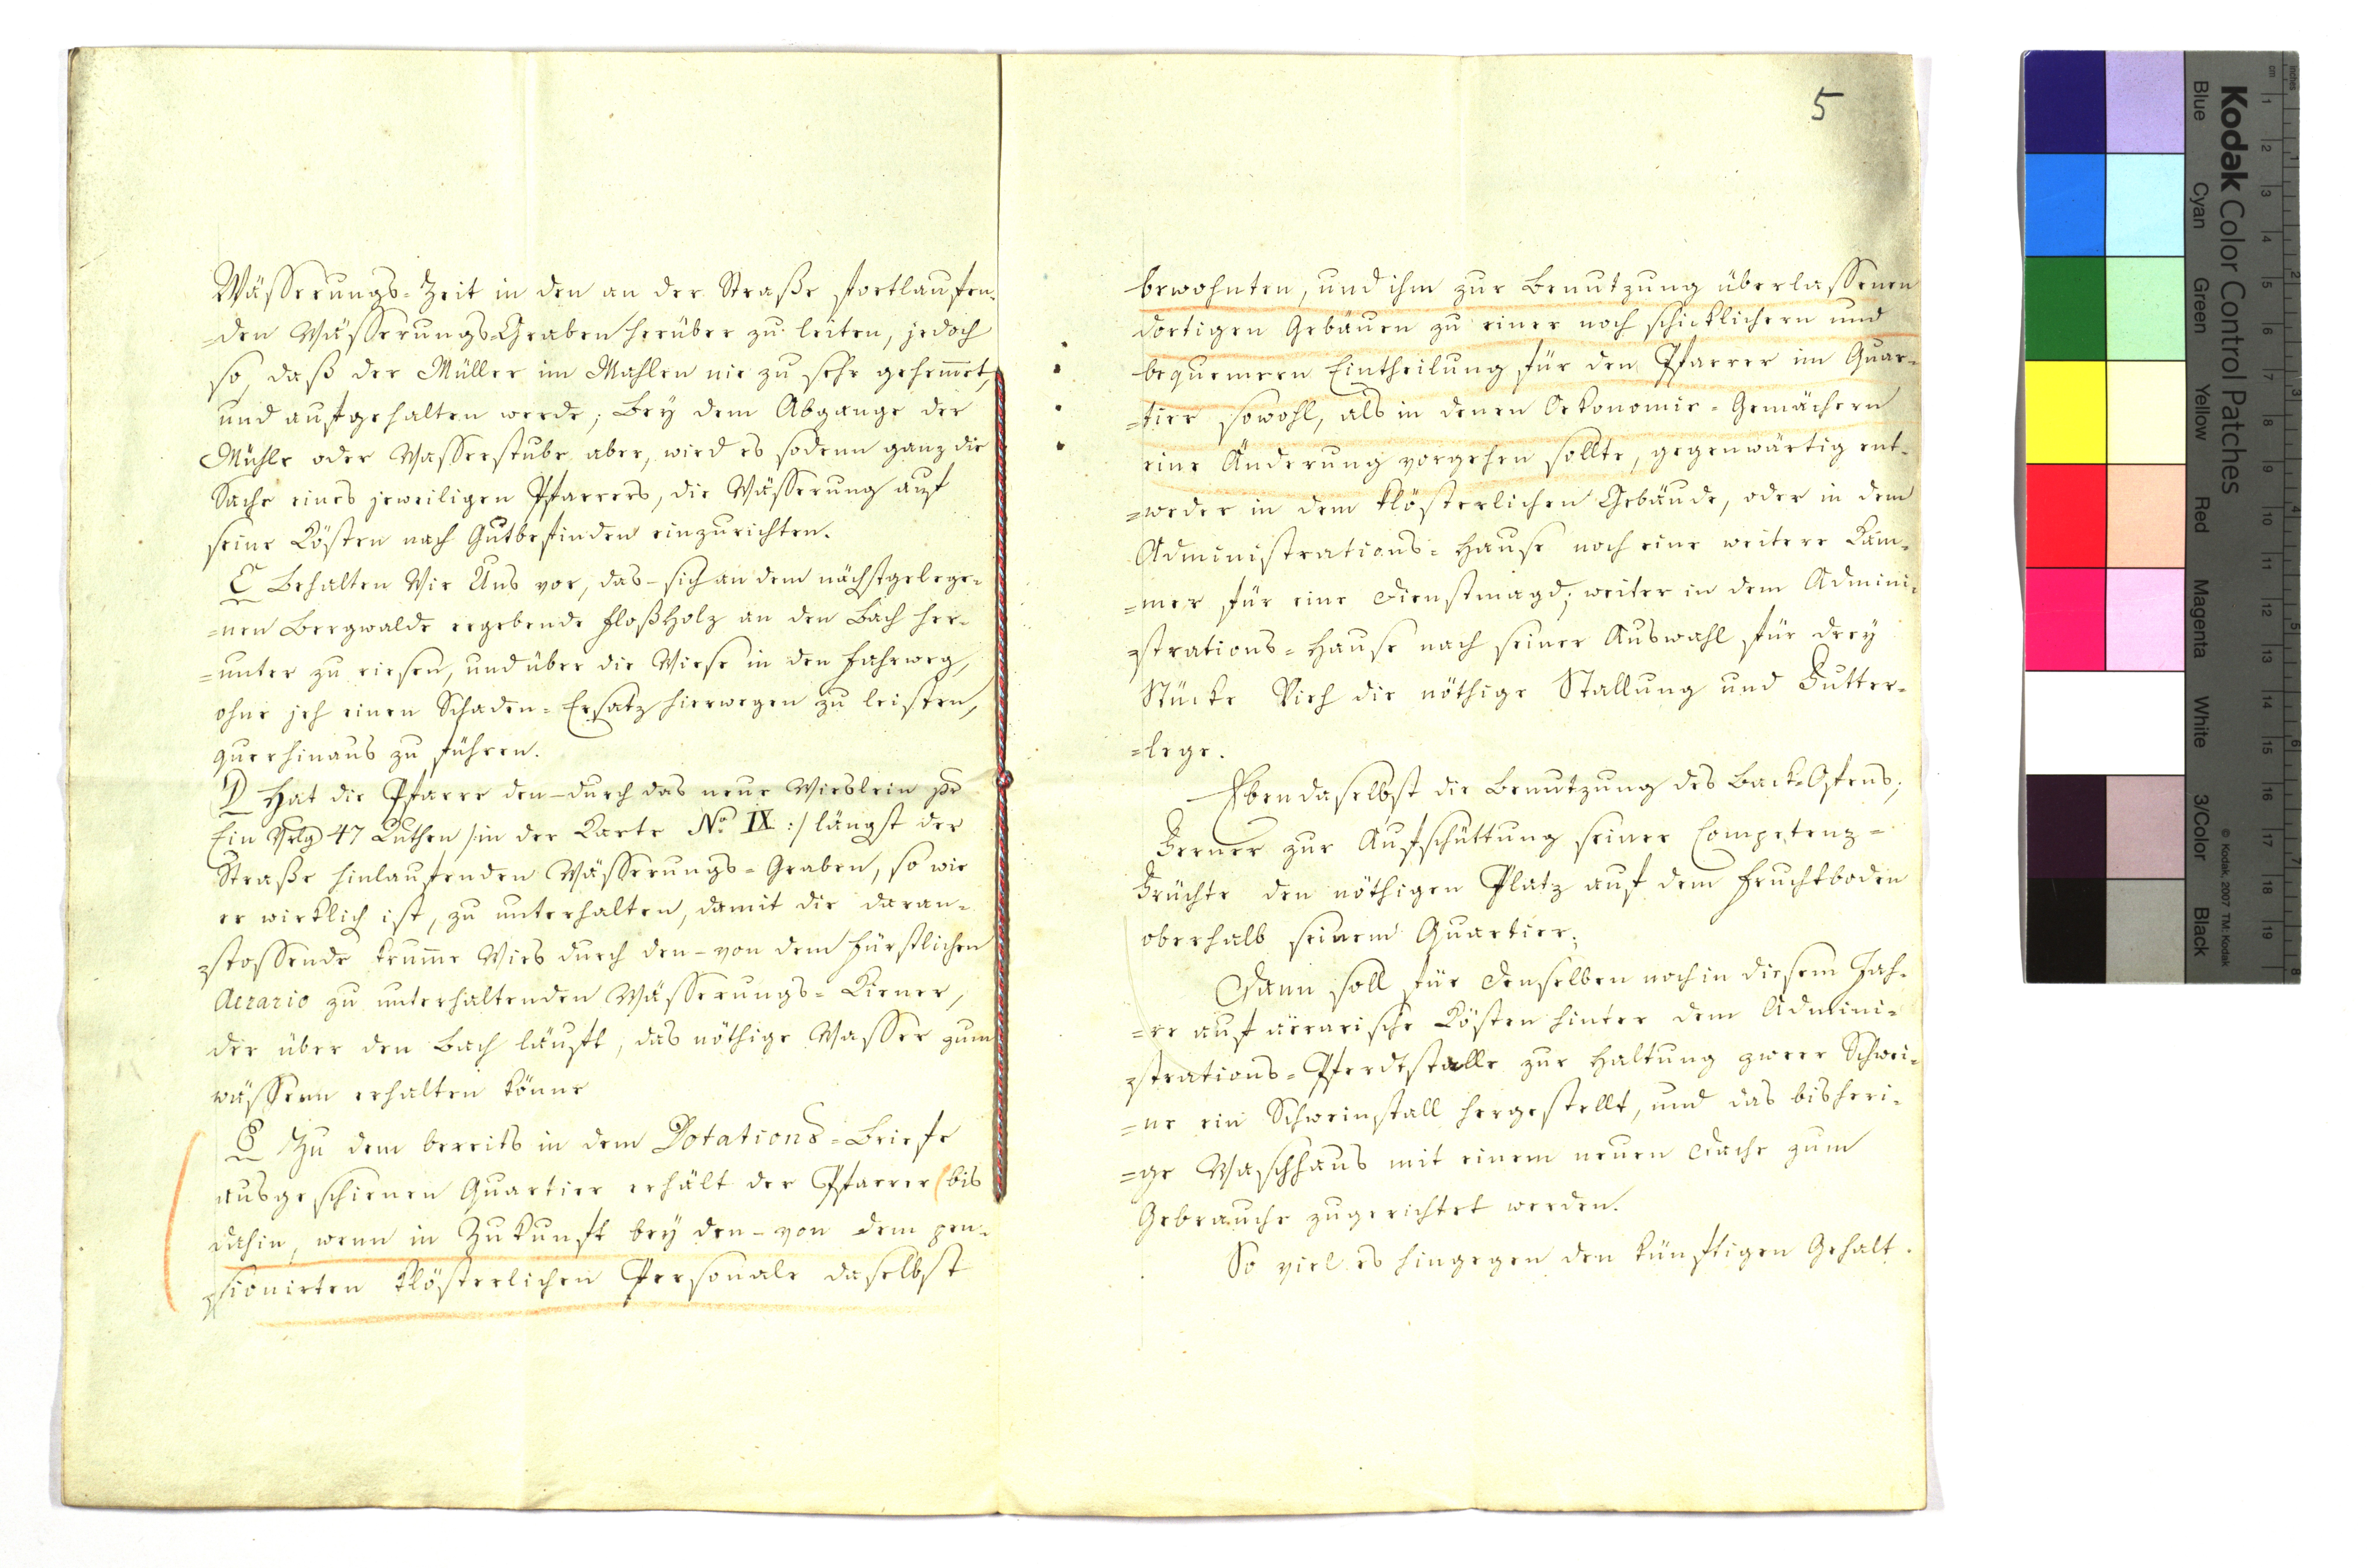 Wässerungs-Zeit in den an der Straße fortlaufen-
=den Wässerungs-Graben herüber zu leiten, jedoch
so, daß der Müller im Mahlen nie zu sehr gehem̄et,
und aufgehalten werde; Bey dem Abgange der
Mühle oder Wasserstube aber, wird es sodenn ganz die
Sache eines jeweiligen Pfarrers, die Wässerung auf
seine Kösten nach Gutbefinden einzurichten.
C Behalten Wir Uns vor, das-sich an dem nächstgelege-
=nen Bergwalde ergebende Floßholz an den Bach her-
=unter zu riesen, und über die Wiese in den Fahrweg,
ohne jeh einen Schaden-Ersatz hierwegen zu leisten,
querhinaus zu führen.
D Hat die Pfarre den-durch das neue Wieslein pr
Ein Vrlg 47 Ruthen /:in der Karte No IX :/ längst der
Straße hinlaufenden Wässerungs-Graben, so wie
er wirklich ist, zu unterhalten, damit die daran-
=stossende krum̄e Wies durch den-von dem Fürstlichen
Aerario zu unterhaltenden Wässerungs-Kiener,
der über den Bach läuft, das nöthige Wasser zum
wässern erhalten könne
E Zu dem bereits in dem Dotations-Briefe
ausgeschienen Quartier erhält der Pfarrer (bis
dahin, wenn in Zukunft bey den-von dem pen-
=sionirten klösterlichen Personale daselbst
5
bewohnten, und ihm zur Benutzung überlassenen
dortigen Gebäuen zu einer noch schicklichern und
bequemern Eintheilung für den Pfarrer im Quar-
=tier sowohl, als in denen Oekonomie-Gemächern
eine Änderung vorgehen sollte, gegenwärtig ent-
=weder in dem klösterlichen Gebäude, oder in dem
Administrations-Hause noch eine weitere Kam-
=mer für eine Dienstmagd; weiter in dem Admini-
=strations-Hause nach seiner Auswahl für drey
Stücke Vieh die nöthige Stallung und Futter-
=lege.
Ebendaselbst die Benutzung des Back-Ofens;
Ferner zur Aufschüttung seiner Competenz-
Früchte den nöthigen Platz auf dem Fruchtboden
oberhalb seinem Quartier;
Dann soll für denselben noch in diesem Jah-
=re auf ärrarische Kösten hinter dem Admini-
=strations-Pferdtstalle zur Haltung zweer Schwei-
=ne ein Schweinstall hergestellt, und das bisheri-
=ge Waschhaus mit einem neuen Dache zum
Gebrauche zugerichtet werden.
So viel es hingegen den künftigen Gehalt
Kodak Color Control Patches
© Kodak, 2007 TM: Kodak
Blue Cyan Green Yellow Red Magenta White 3/Color Black
cm 1 2 3 4 5 6 7 8 9 10 11 12 13 14 15 16 17 18 19
inches 1 2 3 4 5 6 7 8